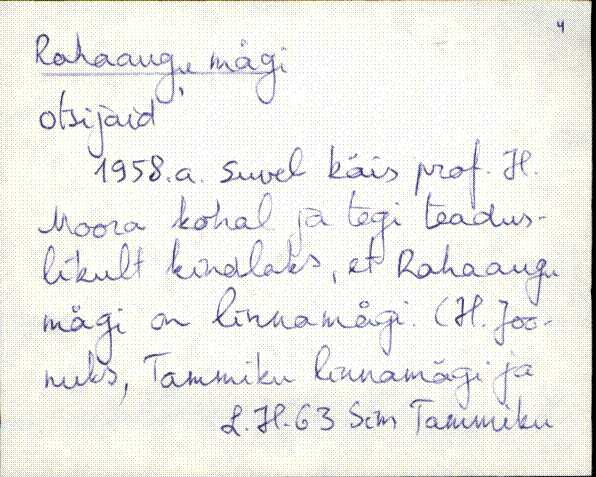 4
Rahaaugu mägi
otsijaid"
1958.a. suvel käis prof. H.
Moora kohal ja tegi teadus-
likult kindlaks, et Rahaaugu
mägi on linnamägi. (H. Joo-
nuks, Tammiku linnamägi ja
L.H.63 Sim Tammiku